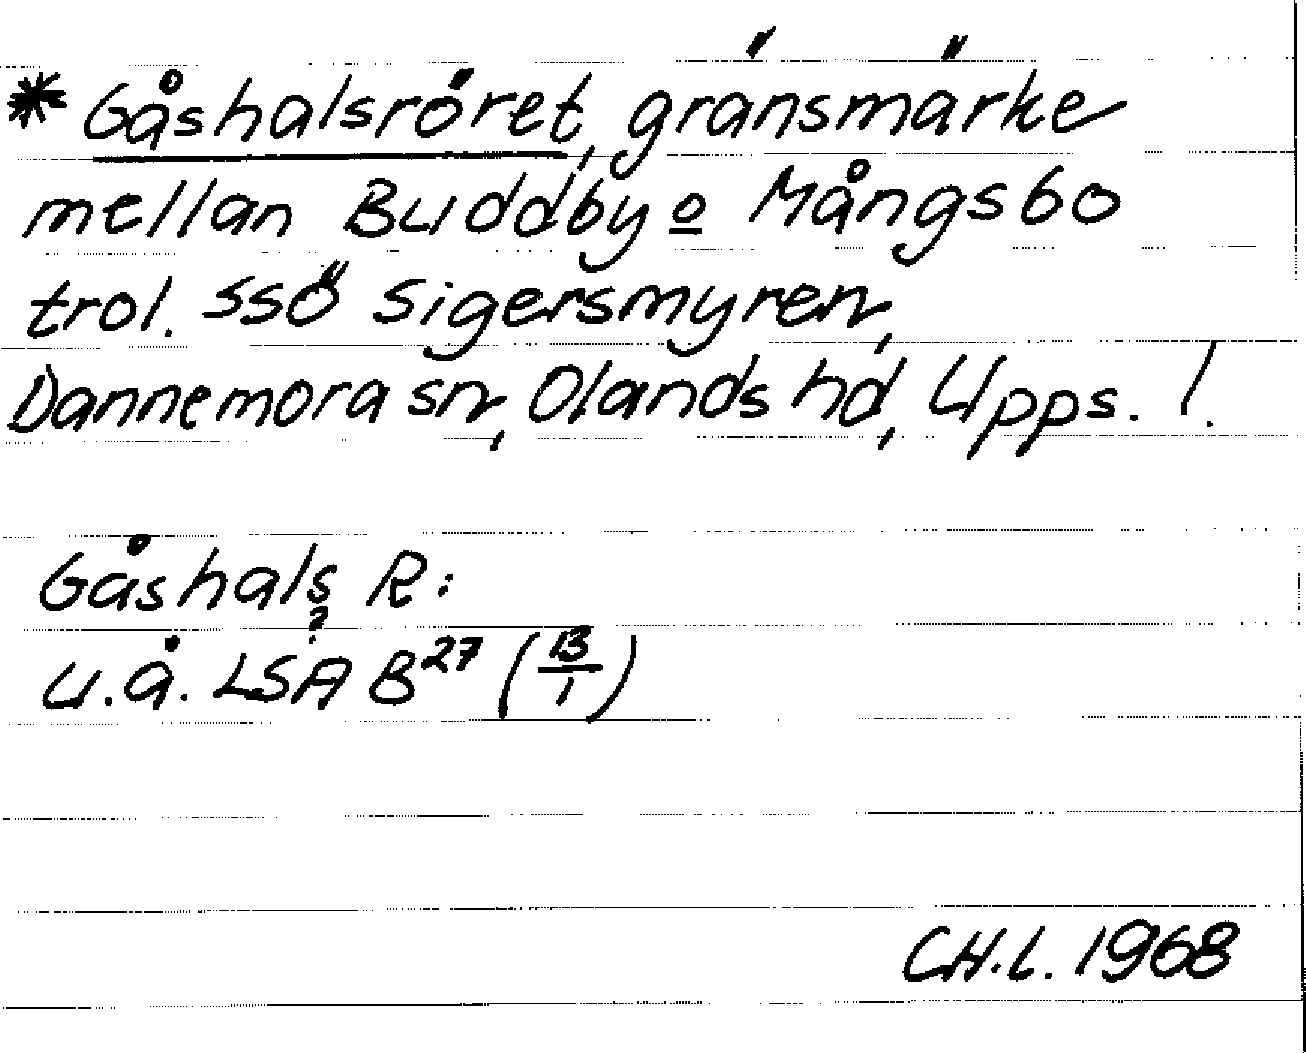 * Gåshalsröret, gränsmärke
mellan Buddby o Mångsbo
trol. SSÖ Sigersmyren,
Dannemora sn, Olands hd, Upps. l.
Gåshals R:
?
u.å. LSA B27 (13/1)
CH.L. 1968